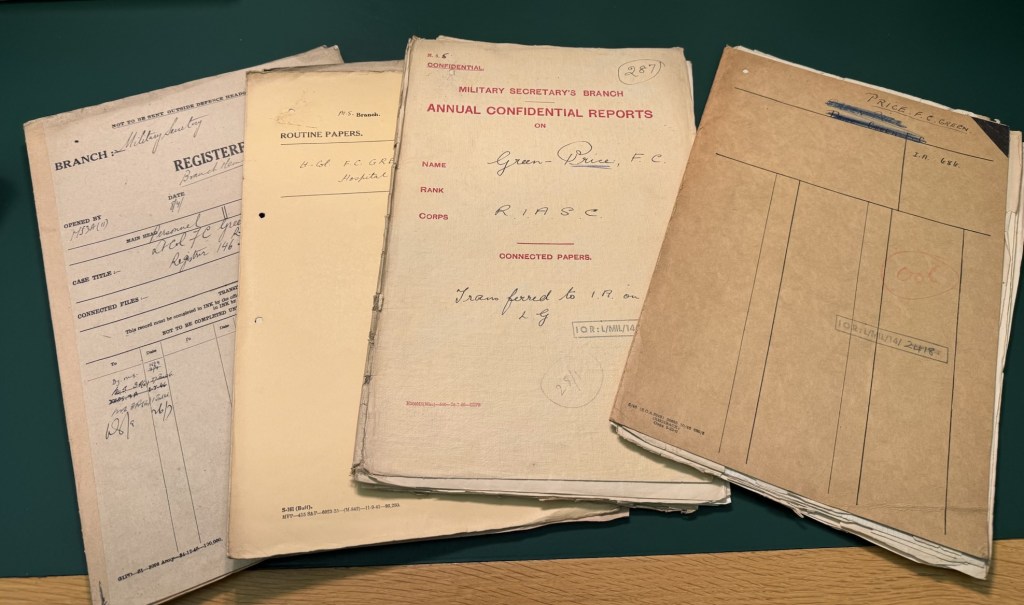 NOT TO BE SENT OUTSIDE DEFENCE HEAD
BRANCH :- Military Secretary
REGISTERE
DATE
OPENED BY
MAIN HEAD Personnel
Lt Col F C Gree
CASE TITLE :-
Registrar 146
CONNECTED FILES :-
TRANSI
This record must be completed in INK by the offi
in INK to
NOT TO BE COMPLETED UN
To
Date
To
Date
26/7
M.S. Branch.
ROUTINE PAPERS.
Lt-Col F.C. GRE
Hospital
S-102 (Bull).
CONFIDENTIAL.
287
MILITARY SECRETARY'S BRANCH
ANNUAL CONFIDENTIAL REPORTS
ON
NAME Green-Price, F.C.
RANK
CORPS R I A S C
CONNECTED PAPERS.
Transferred to I.R. on
L G
IOR:L/MIL/14
PRICE, F.C. GREEN
I.R. 656
IOR:L/MIL/14/